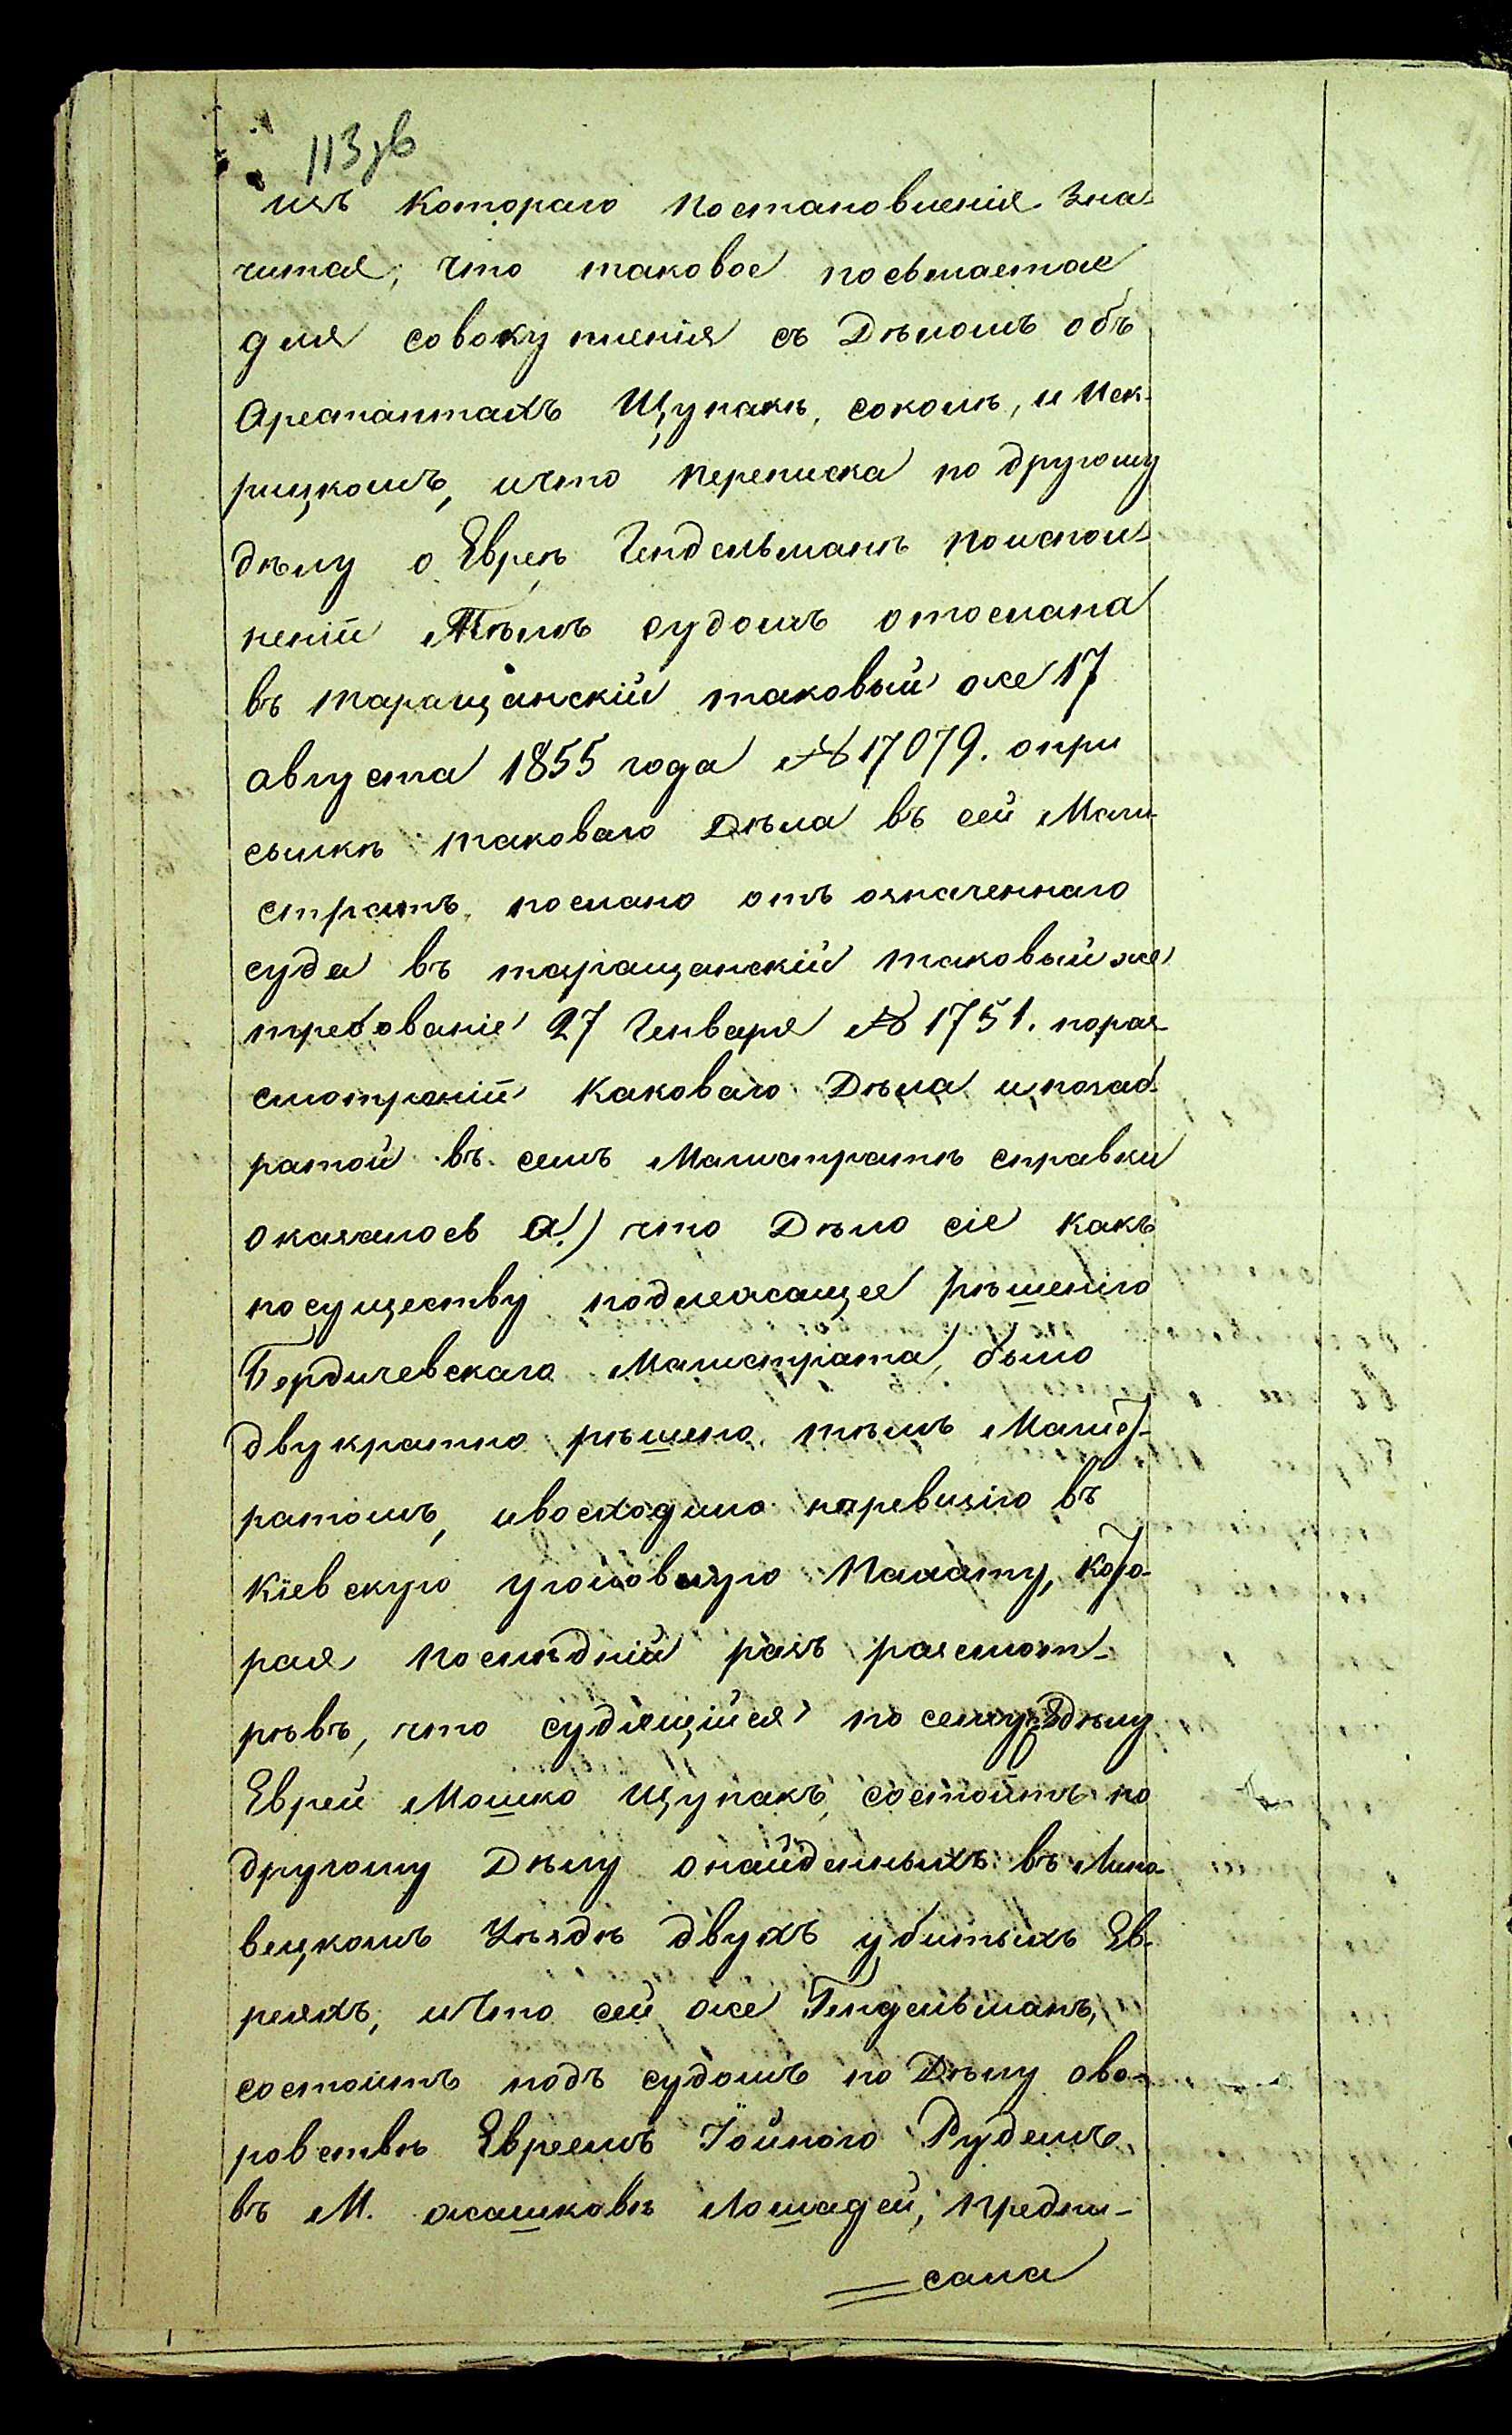 113 зв
изъ котораго постановленія зна-
чится, что таковое посылается
для совокупленія съ Дѣломъ объ
Арестантахъ Щупакѣ, соколѣ, и Иск-
рицкомъ, ичто переписка по другому
дѣлу о Евреѣ Гендельманѣ поиспол-
неніи Тѣмъ судомъ отослана
въ таращанскій таковый же 17
августа 1855 года № 17079. опри
сылкѣ таковаго Дѣла въ сей Маги-
стратъ, послано отъ означеннаго
суда въ таращанскій таковый же
требованіе 27 Генваря № 1751. пораз-
смотреніи каковаго Дѣла и позаб-
ратой въ семъ Магистратѣ справки
оказалось а) что Дѣло сіе какъ
посуществу подлежащее рѣшенію
Бердичевскаго Магистрата, было
двукратно рѣшено, тѣмъ Магист-
ратомъ, ивосходило наревизію въ
Кіевскую уголовную Палату, кото-
рая послѣдній разъ разсмот-
рѣвъ, что судящійся по сему дѣлу
Еврей Мошко Щупакъ, состоитъ по
другому Дѣлу онайденныхъ въ Липо-
вецкомъ Уѣздѣ двухъ убитыхъ Ев-
реяхъ, ичто сей же Гендельманъ,
состоитъ подъ судомъ по Дѣлу ово-
ровствѣ Евреемъ Іойного Рудемъ
въ М. жашковѣ Лошадей, предпи-
сала